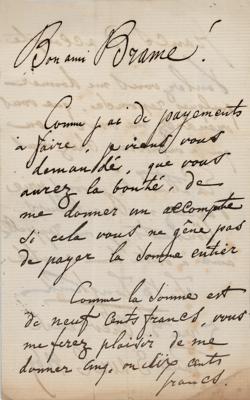 Bon ami Bramé!
Comme j'ai de payements
à faire, je viens vous
demandé, que vous
aurez la bonté, de
me donner un accompte
si cela vous ne gêne pas
de payer la somme entier
Comme la somme est
de neuf cents francs, vous
me ferez plaisir de me
donner cinq, ou six cents
francs.